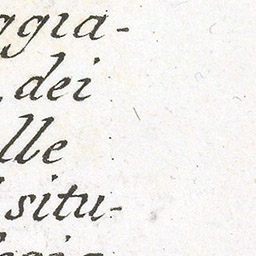 ggia-
dei
lle
situ-